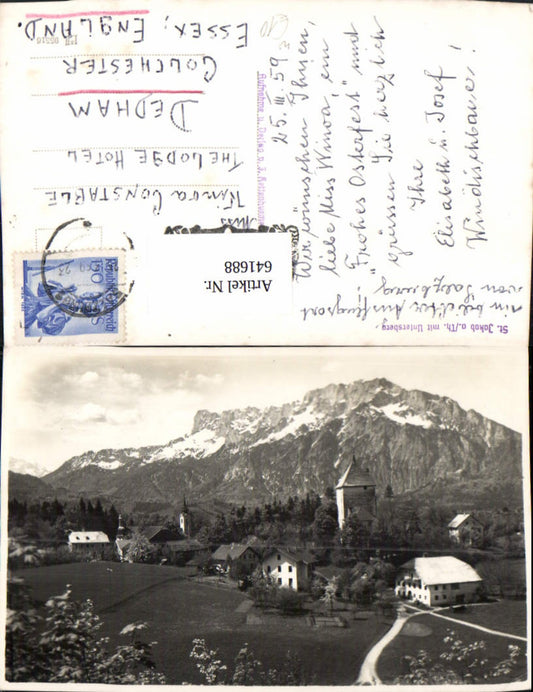 St. Jakob a./Th. mit Untersberg.
ein beliebter Ausflugsort
von Salzburg!
25. III. 59.
Wir wünschen Ihnen,
liebe Miss Winova, ein
"Frohes Osterfest" und
grüssen Sie herzlich
Ihre
Elisabeth u. Josef
Windischbauer!
Miss
Winova Constable
The Lodge Hotel
Dedham
Colchester
Essex, England.
Artikel Nr.
641688
1.50